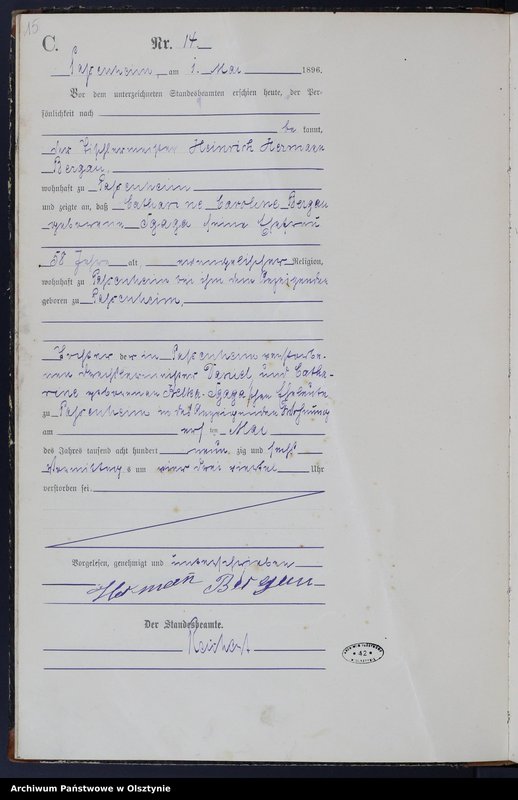 15
C.
Nr. 14
Passenheim am 1. Mai 1896.
Vor dem unterzeichneten Standesbeamten erschien heute, der Per-
sönlichkeit nach
be kannt,
der Tischlermeister Heinrich Hermann
Bergau,
wohnhaft zu Passenheim
und zeigte an, daß Catharine Caroline Bergau
geborene Sgaga seine Ehefrau
58 Jahre alt, evangelischer Religion,
wohnhaft zu Passenheim bei ihm dem Anzeigenden
geboren zu Passenheim,
Tochter der in Passenheim verstorbe-
nen Daniel und Catha-
rine geborenen Sgaga'schen Eheleute
zu Passenheim in des Anzeigenden Wohnung
am ten Mai
des Jahres tausend acht hundert neun zig und sechs
Vormittags um vier drei viertel Uhr
verstorben sei.
Vorgelesen, genehmigt und unterschrieben
Hermann Bergau
Der Standesbeamte.
42
Archiwum Państwowe w Olsztynie